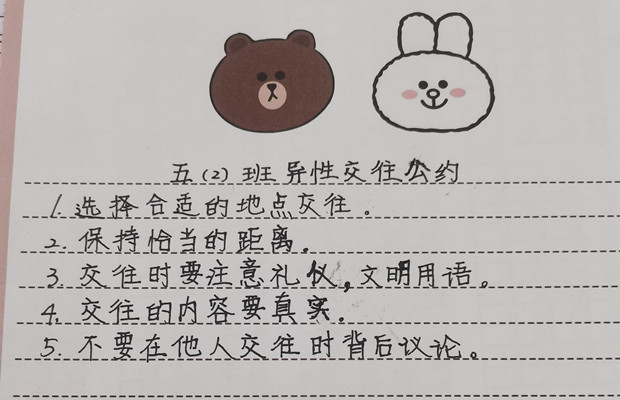 五(2)班异性交往公约
1.选择合适的地点交往。
2.保持恰当的距离.
3.交往时要注意礼仪,文明用语。
4.交往的内容要真实.
5.不要在他人交往时背后议论。